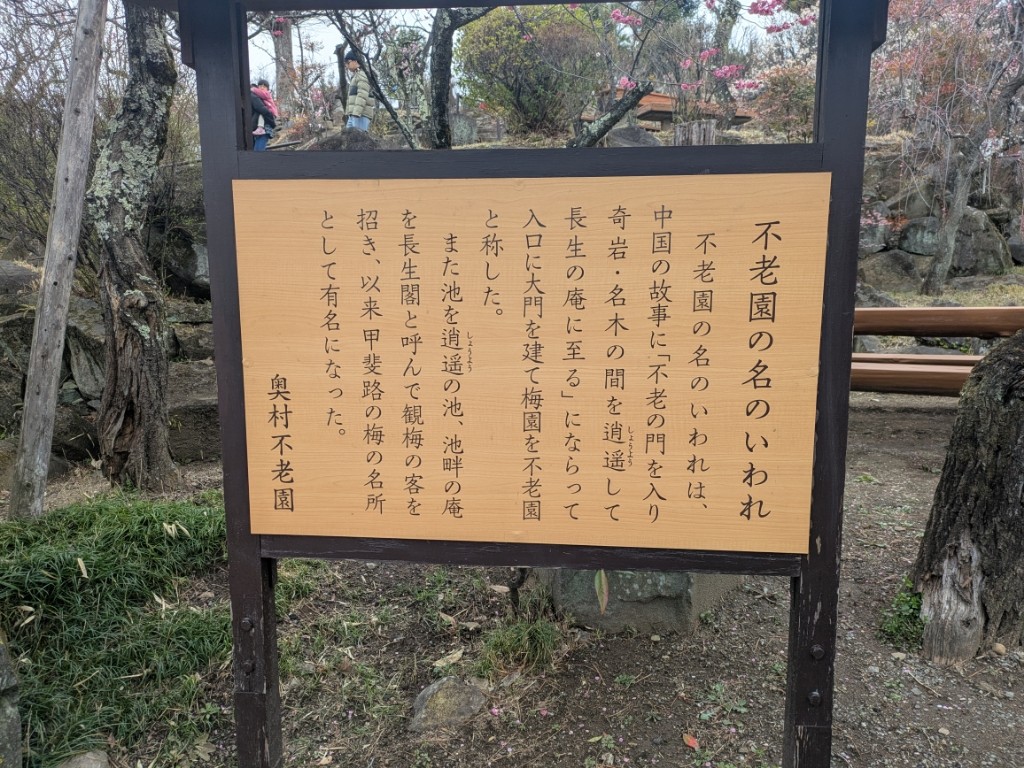 不老園の名のいわれ
不老園の名のいわれは、
中国の故事に「不老の門を入り
奇岩・名木の間を逍遥して
しょうよう
長生の庵に至る」にならって
入口に大門を建て梅園を不老園
と称した。
また池を逍遥の池、池畔の庵
しょうよう
を長生閣と呼んで観梅の客を
招き、以来甲斐路の梅の名所
として有名になった。
奥村不老園